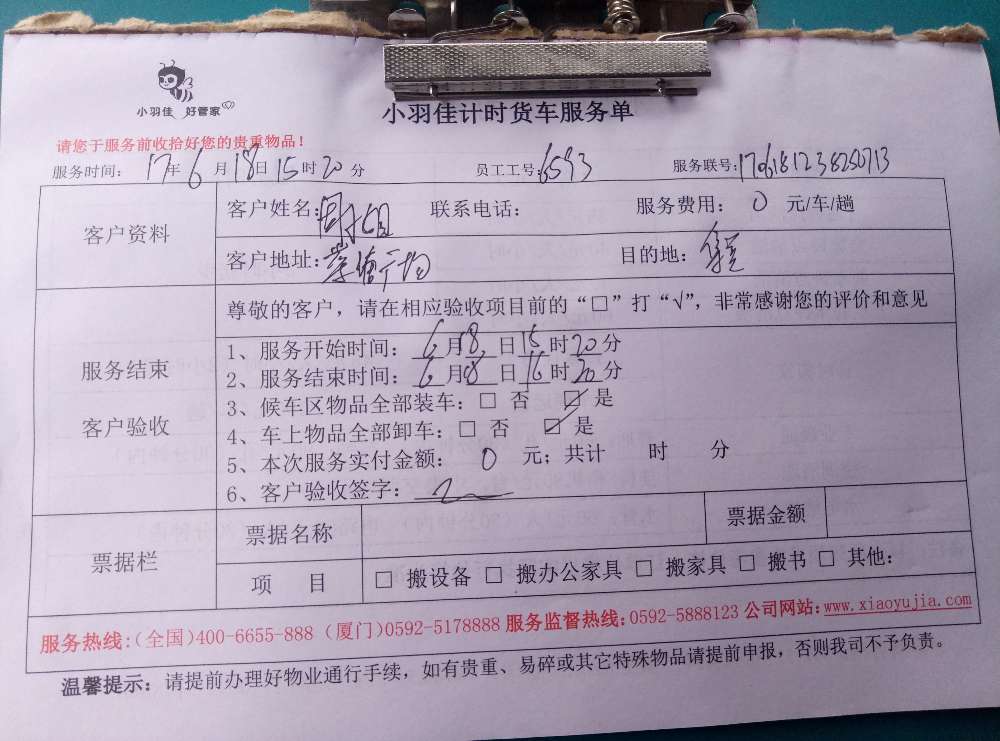 小羽佳 好管家
小羽佳计时货车服务单
请您于服务前收拾好您的贵重物品!
服务时间: 17年6月18日15时20分 员工工号:6593 服务联号:1706181238250713
客户资料
客户姓名:周小姐 联系电话: 服务费用: 0 元/车/趟
客户地址: 目的地:
服务结束
客户验收
尊敬的客户，请在相应验收项目前的“□”打“√”，非常感谢您的评价和意见
1、服务开始时间: 6月18日15时20分
2、服务结束时间: 6月18日16时20分
3、候车区物品全部装车: □ 否 ☑ 是
4、车上物品全部卸车: □ 否 ☑ 是
5、本次服务实付金额: 0 元; 共计 时 分
6、客户验收签字:
票据栏
票据名称 票据金额
项 目 □ 搬设备 □ 搬办公家具 □ 搬家具 □ 搬书 □ 其他:
服务热线:(全国)400-6655-888 (厦门)0592-5178888 服务监督热线:0592-5888123 公司网站:www.xiaoyujia.com
温馨提示: 请提前办理好物业通行手续，如有贵重、易碎或其它特殊物品请提前申报，否则我司不予负责。